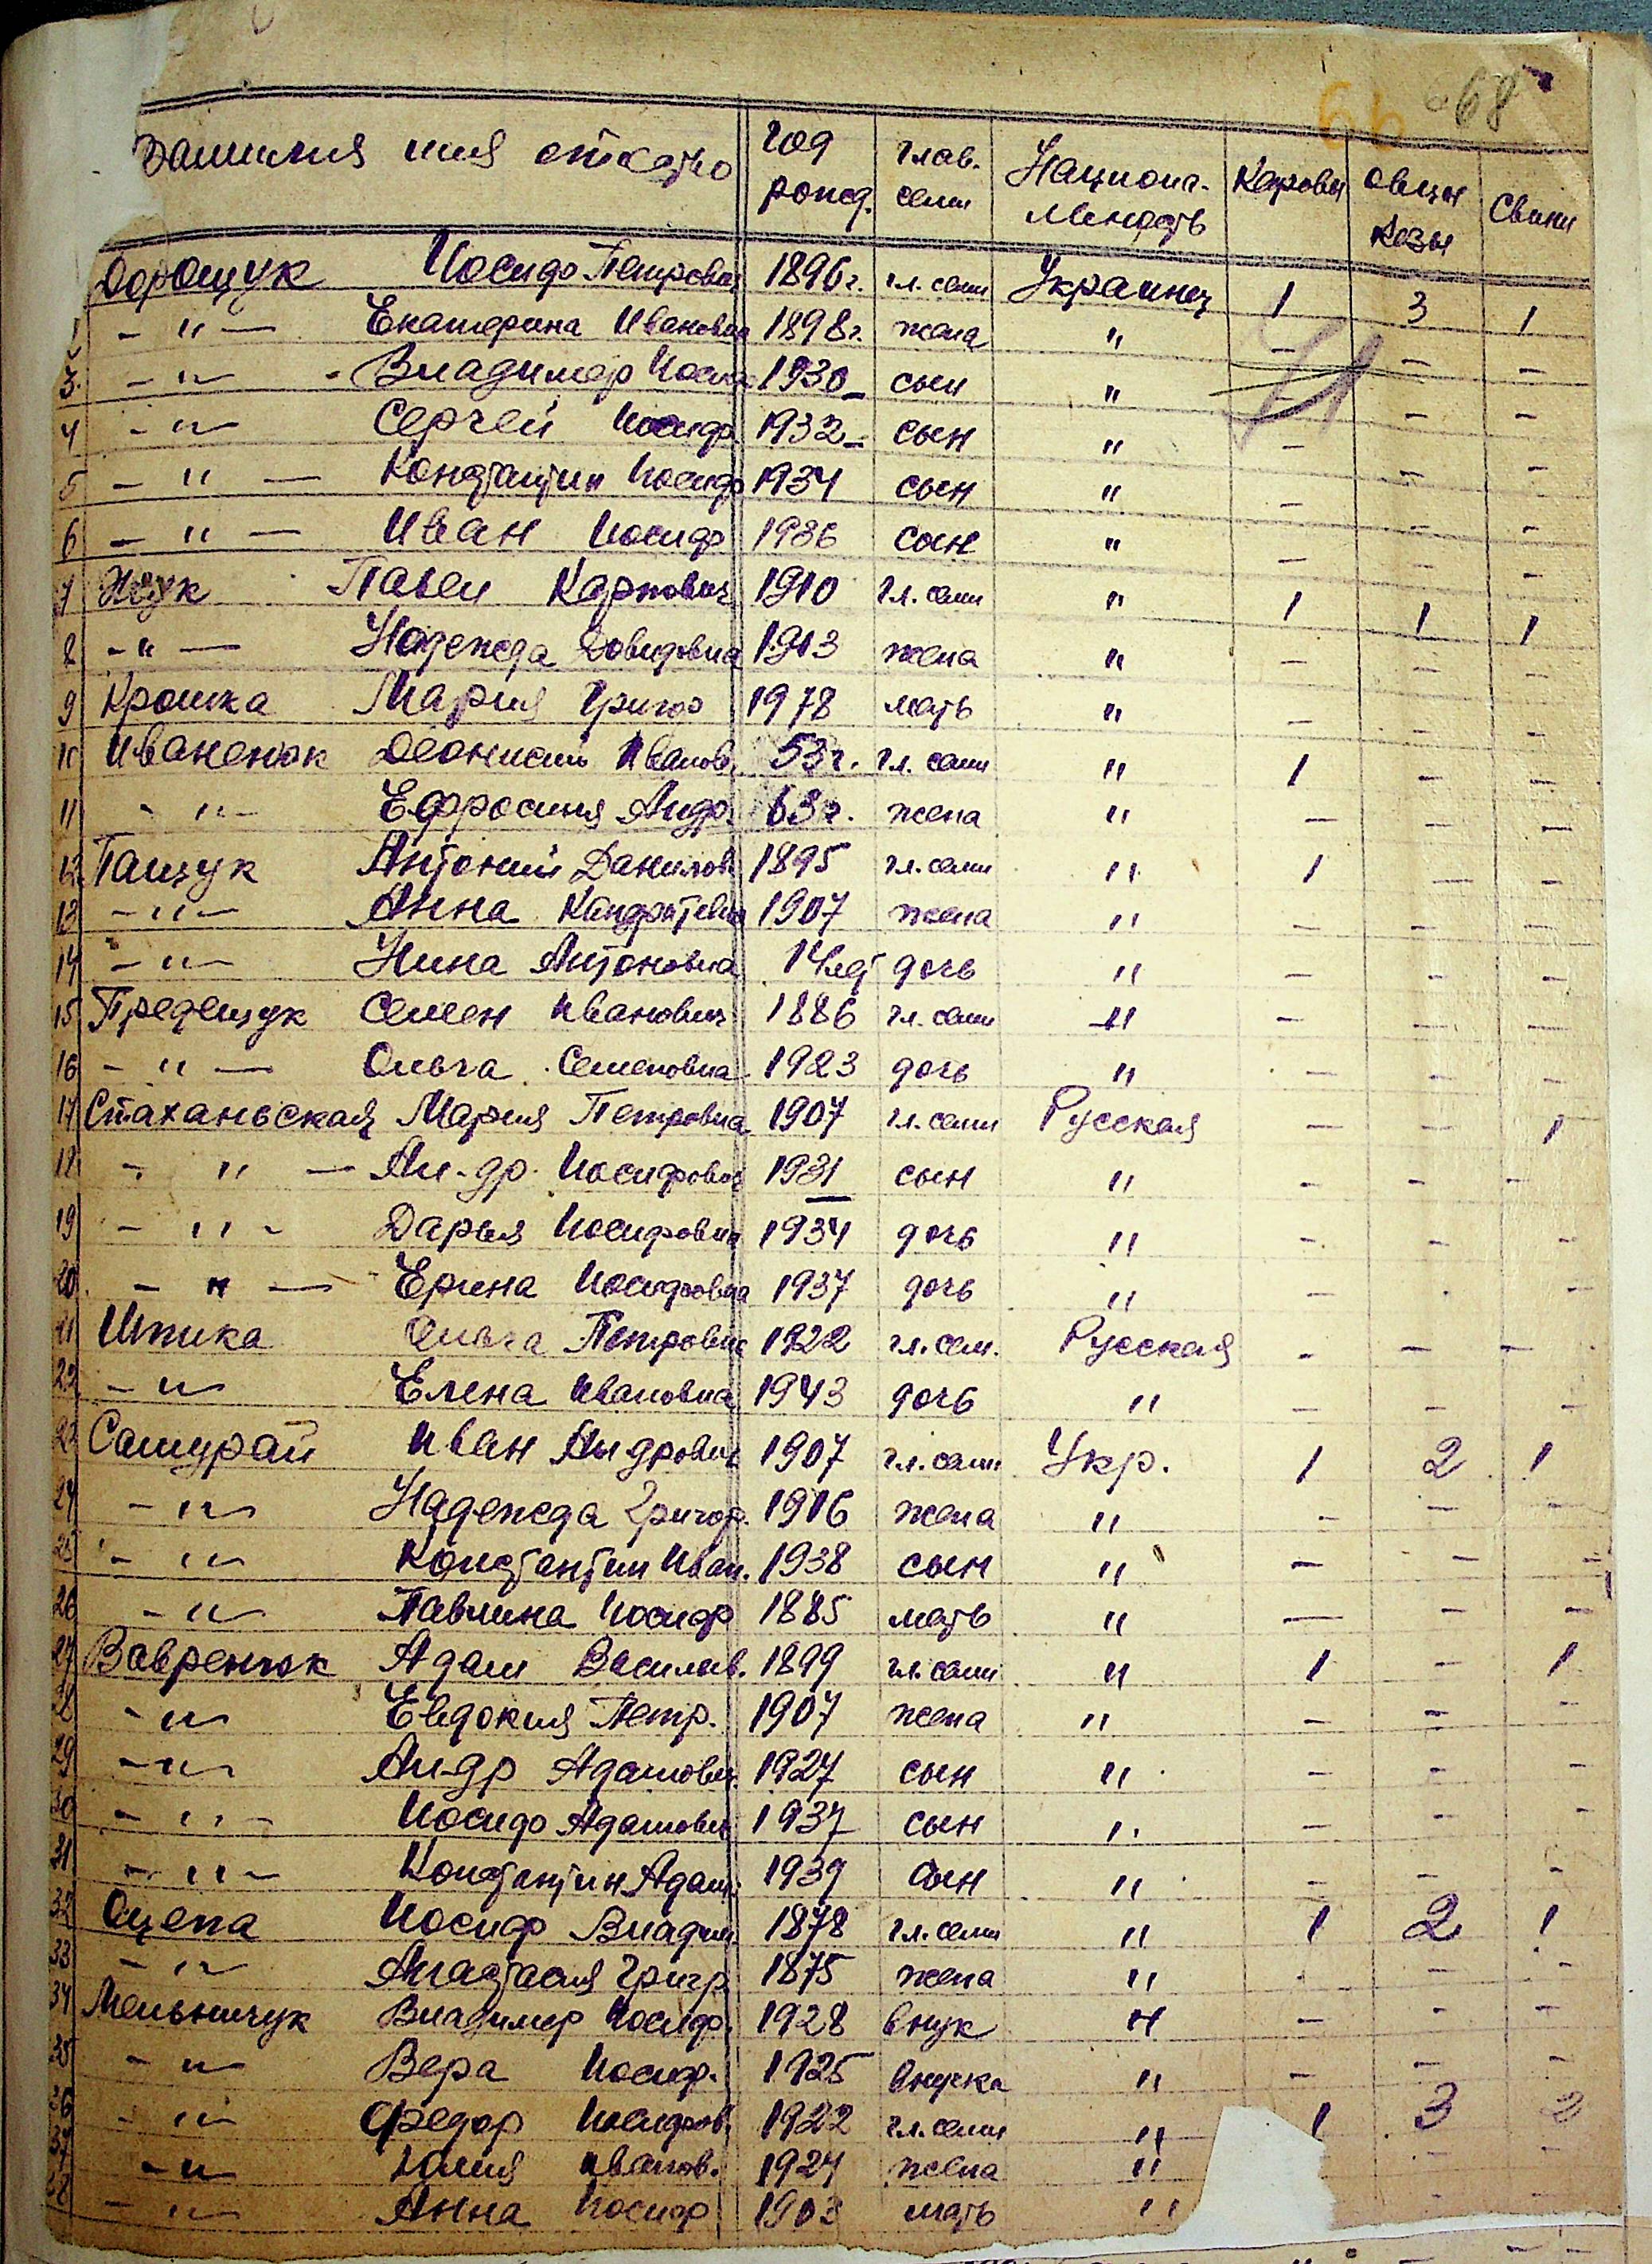 68
Фамилия имя отчество год рожд. глав. семи Национальность Коровы овцы козы Свини
Дорощук Иосиф Петрович 1896г. гл. семи Украинец 1 3 1
- " - Екатерина Ивановна 1898г. жена " - - -
3. - " - Владимер Иосиф 1930 сын " - - -
4 - " - Сергей Иосиф 1932 сын " - - -
5 - " - Константин Иосиф 1934 сын " - - -
6 - " - Иван Иосиф 1936 сын " - - -
7 Павел Карпович 1910 гл. семи " 1 1 1
8 - " - Надежда Довидовна 1913 жена " - - -
9 Крошка Мария Григор 1978 мать " - - -
10 Иваненюк Деонисий Иванов. 53г. гл. семи " 1 - -
11 - " - Ефросиния Андр. 63г. жена " - - -
12 Пащук Антоний Данилов 1895 гл. семи " 1 - -
13 - " - Анна Кандратевна 1907 жена " - - -
14 - " - Нина Антоновна 14 лет дочь " - - -
15 Семен Иванович 1886 гл. семи " - - -
16 - " - Ольга Семеновна 1923 дочь " - - -
17 Стаханьская Мария Петровна 1907 гл. семи Русская - - 1
18 - " - Ан-др. Иосифович 1931 сын " - - -
19 - " - Дарья Иосифовна 1934 дочь " - - -
20 - " - Ерина Иосифовна 1937 дочь " - - -
21 Шпика Ольга Петровна 1922 гл. сем. Русская - - -
22 - " - Елена Ивановна 1943 дочь " - - -
23 Самурай Иван Андрович 1907 гл. семи Укр. 1 2 1
24 - " - Надежда Григор. 1916 жена " - - -
25 - " - Константин Иван. 1938 сын " - - -
26 - " - Павлина Иосиф 1885 мать " - - -
27 Вавренюк Адам Василов. 1899 гл. семи " 1 - 1
28 - " - Евдокия Петр. 1907 жена " - - -
29 - " - Ан-др Адамович 1927 сын " - - -
30 - " - Иосиф Адамович 1937 сын " - - -
31 - " - Константин Адам. 1939 сын " - - -
32 Оцепа Иосиф Владим. 1878 гл. семи " 1 2 1
33 - " - Анастасия Григр 1875 жена " - - -
34 Мельничук Владимер Иосиф. 1928 внук " - - -
35 - " - Вера Иосиф. 1925 внучка " - - -
36 - " - Федор Иосифов. 1922 гл. семи " 1 3 2
37 - " - Юлия Иванов. 1924 жена " - -
38 - " - Анна Иосиф 1903 мать " - -